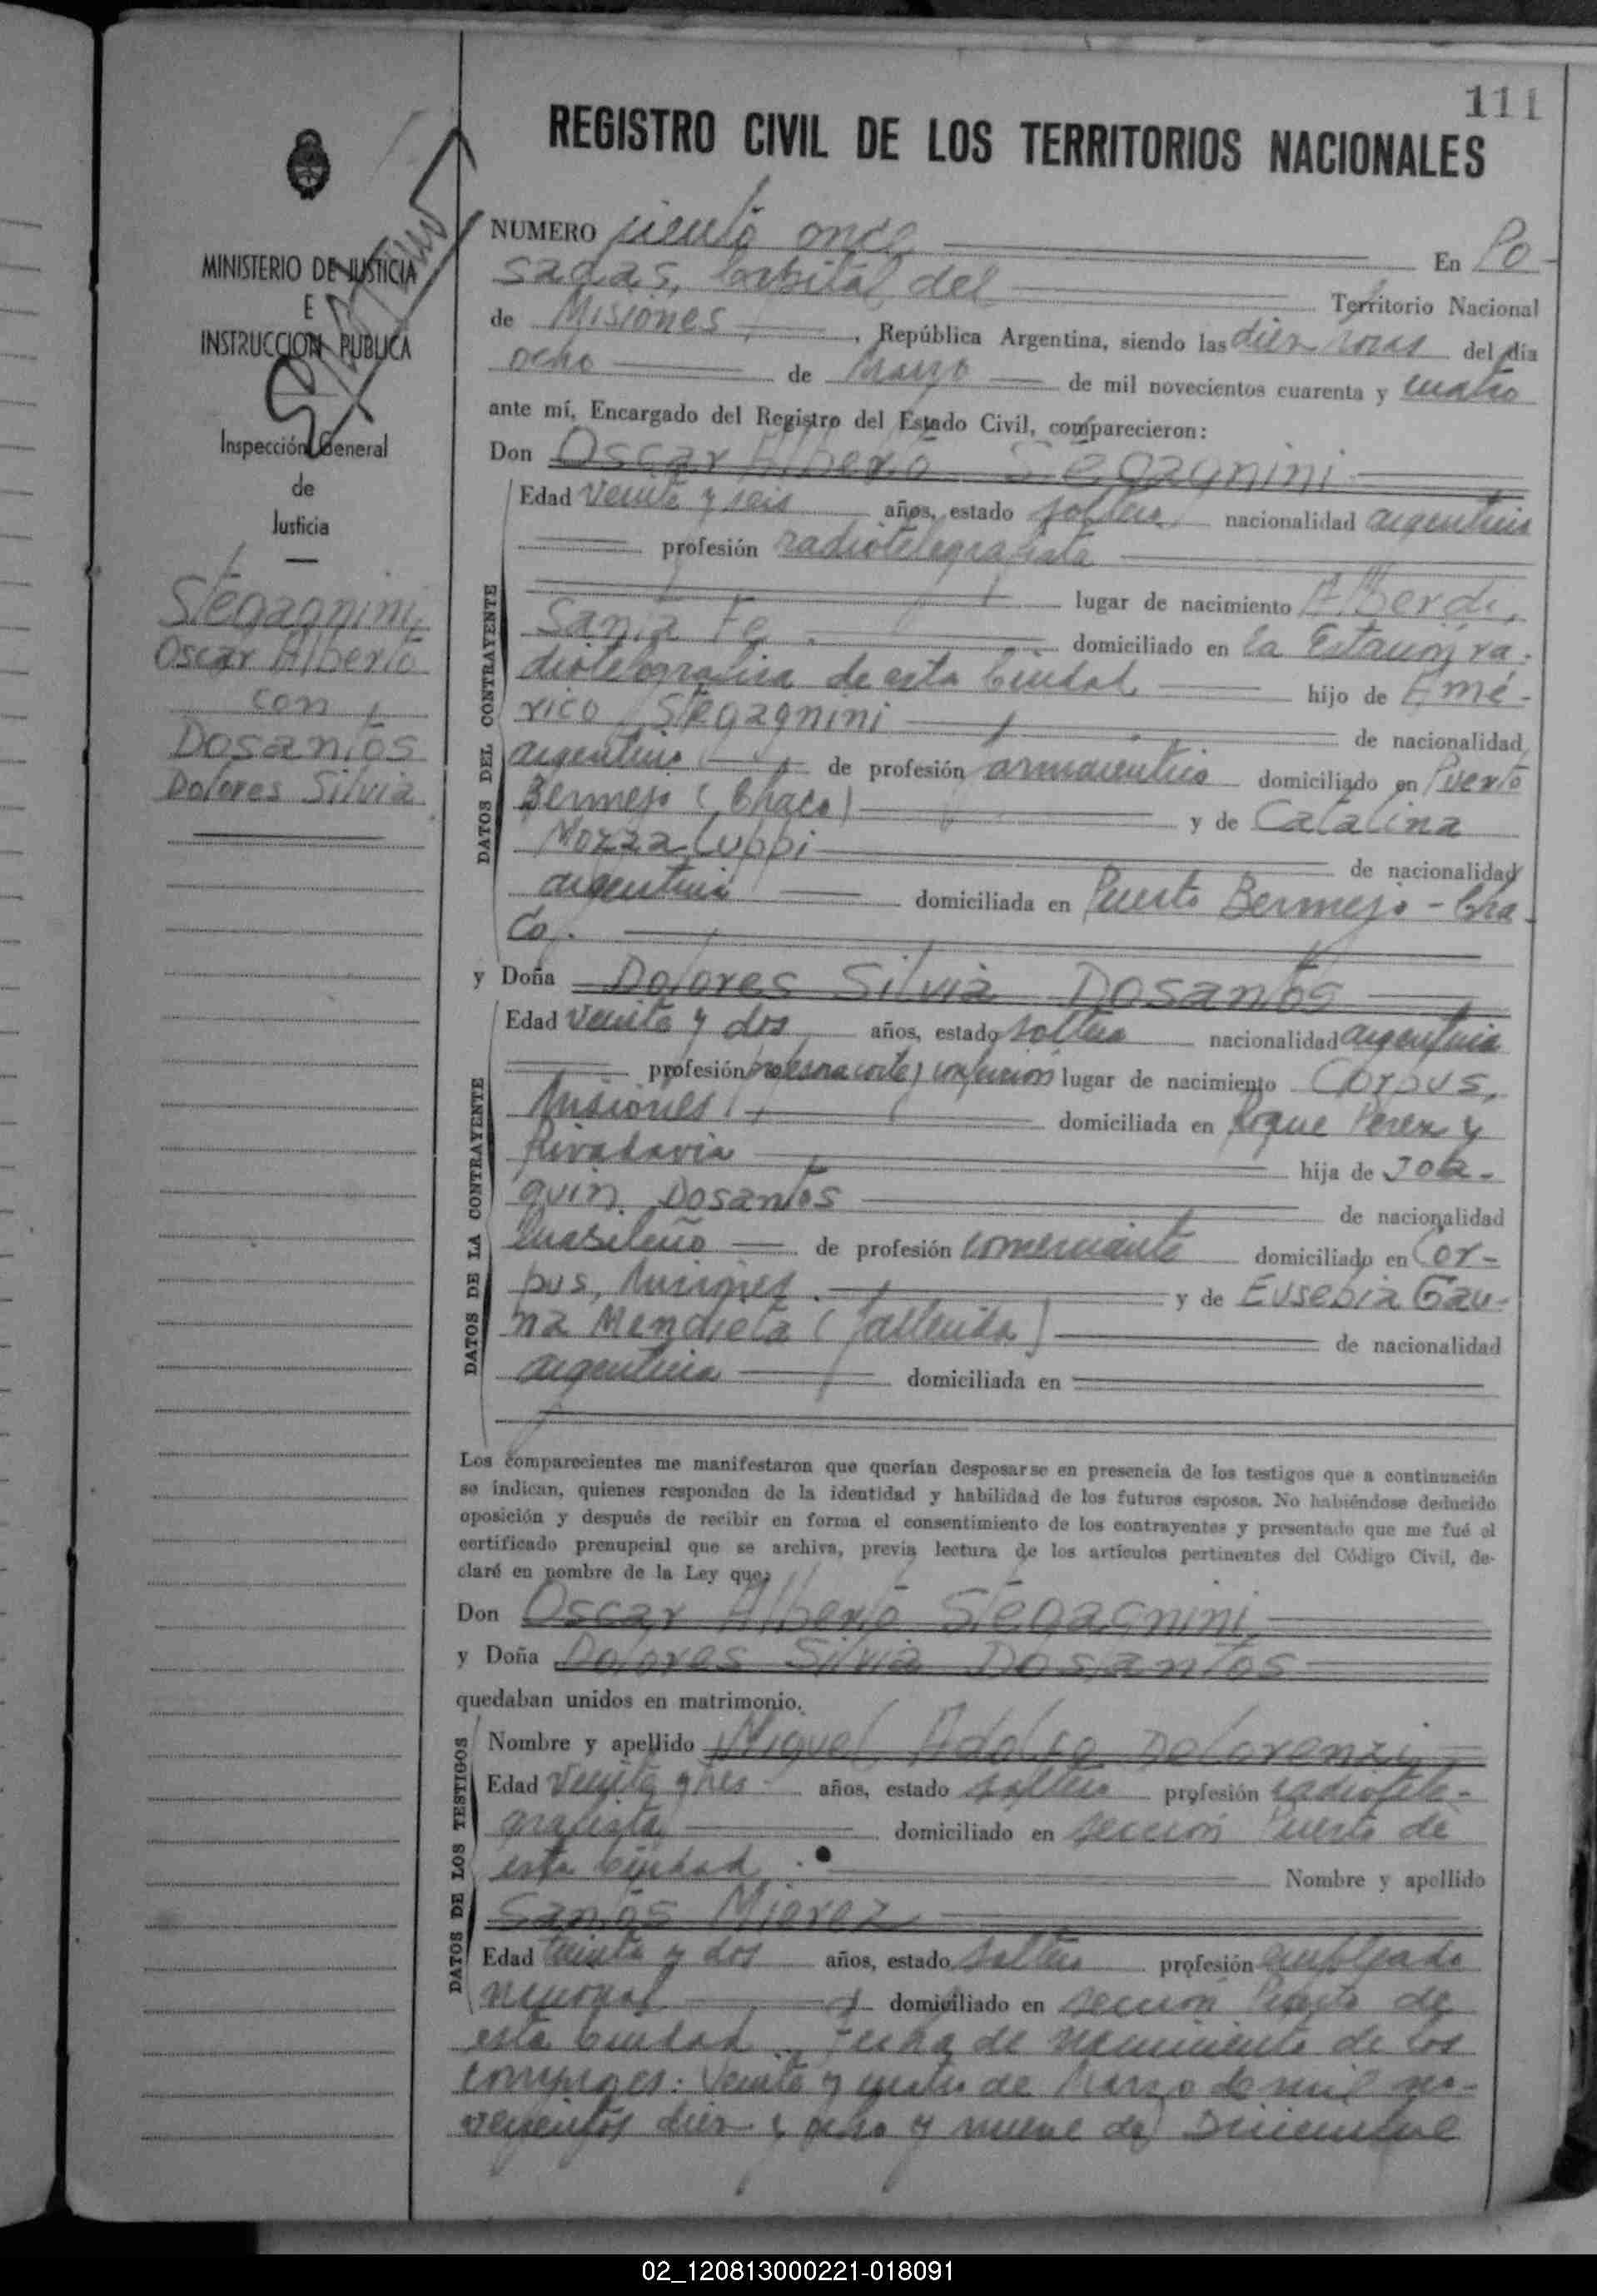 111
REGISTRO CIVIL DE LOS TERRITORIOS NACIONALES
MINISTERIO DE JUSTICIA
E
INSTRUCCION PUBLICA
Inspección General
de
Justicia
Stegagnini,
Oscar Alberto
con
Dosantos
Dolores Silvia
NUMERO ciento once En Po-
sadas, Capital del Territorio Nacional
de Misiones, República Argentina, siendo las diez horas del día
ocho de Marzo de mil novecientos cuarenta y cuatro
ante mí, Encargado del Registro del Estado Civil, comparecieron:
Don Oscar Alberto Stegagnini
Edad veinte y seis años, estado soltero nacionalidad argentino
profesión radiotelegrafista
lugar de nacimiento Alberdi,
Santa Fe. domiciliado en la Estación ra-
diotelegrafica de esta Ciudad hijo de Amé-
rico Stegagnini de nacionalidad
argentino de profesión farmaceutico domiciliado en Puerto
Bermejo (Chaco) y de Catalina
Mozzaluppi de nacionalidad
argentina domiciliada en Puerto Bermejo - Cha-
co.
y Doña Dolores Silvia Dosantos
Edad veinte y dos años, estado soltera nacionalidad argentina
profesión profesora corte y confección lugar de nacimiento Corpus,
Misiones domiciliada en Roque Perez y
Rivadavia hija de Joa-
quin Dosantos de nacionalidad
brasileño de profesión comerciante domiciliado en Cor-
pus, Misiones. y de Eusebia Gau-
na Mendieta (fallecida) de nacionalidad
argentina domiciliada en
DATOS DEL CONTRAYENTE
DATOS DE LA CONTRAYENTE
Los comparecientes me manifestaron que querían desposarse en presencia de los testigos que a continuación
se indican, quienes responden de la identidad y habilidad de los futuros esposos. No habiéndose deducido
oposición y después de recibir en forma el consentimiento de los contrayentes y presentado que me fué el
certificado prenupcial que se archiva, previa lectura de los artículos pertinentes del Código Civil, de-
claré en nombre de la Ley que:
Don Oscar Alberto Stegagnini
y Doña Dolores Silvia Dosantos
quedaban unidos en matrimonio.
DATOS DE LOS TESTIGOS
Nombre y apellido Miguel Adolfo Delorenzi
Edad veinte y tres años, estado soltero profesión radiotele-
grafista domiciliado en sección Puerto de
esta Ciudad. Nombre y apellido
Santos Mierez
Edad treinta y dos años, estado soltero profesión empleado
nacional domiciliado en sección Puerto de
esta Ciudad. Fecha de nacimiento de los
conyuges: Veinte y cuatro de Marzo de mil no-
vecientos diez y ocho y nueve de Diciembre
02_120813000221-018091